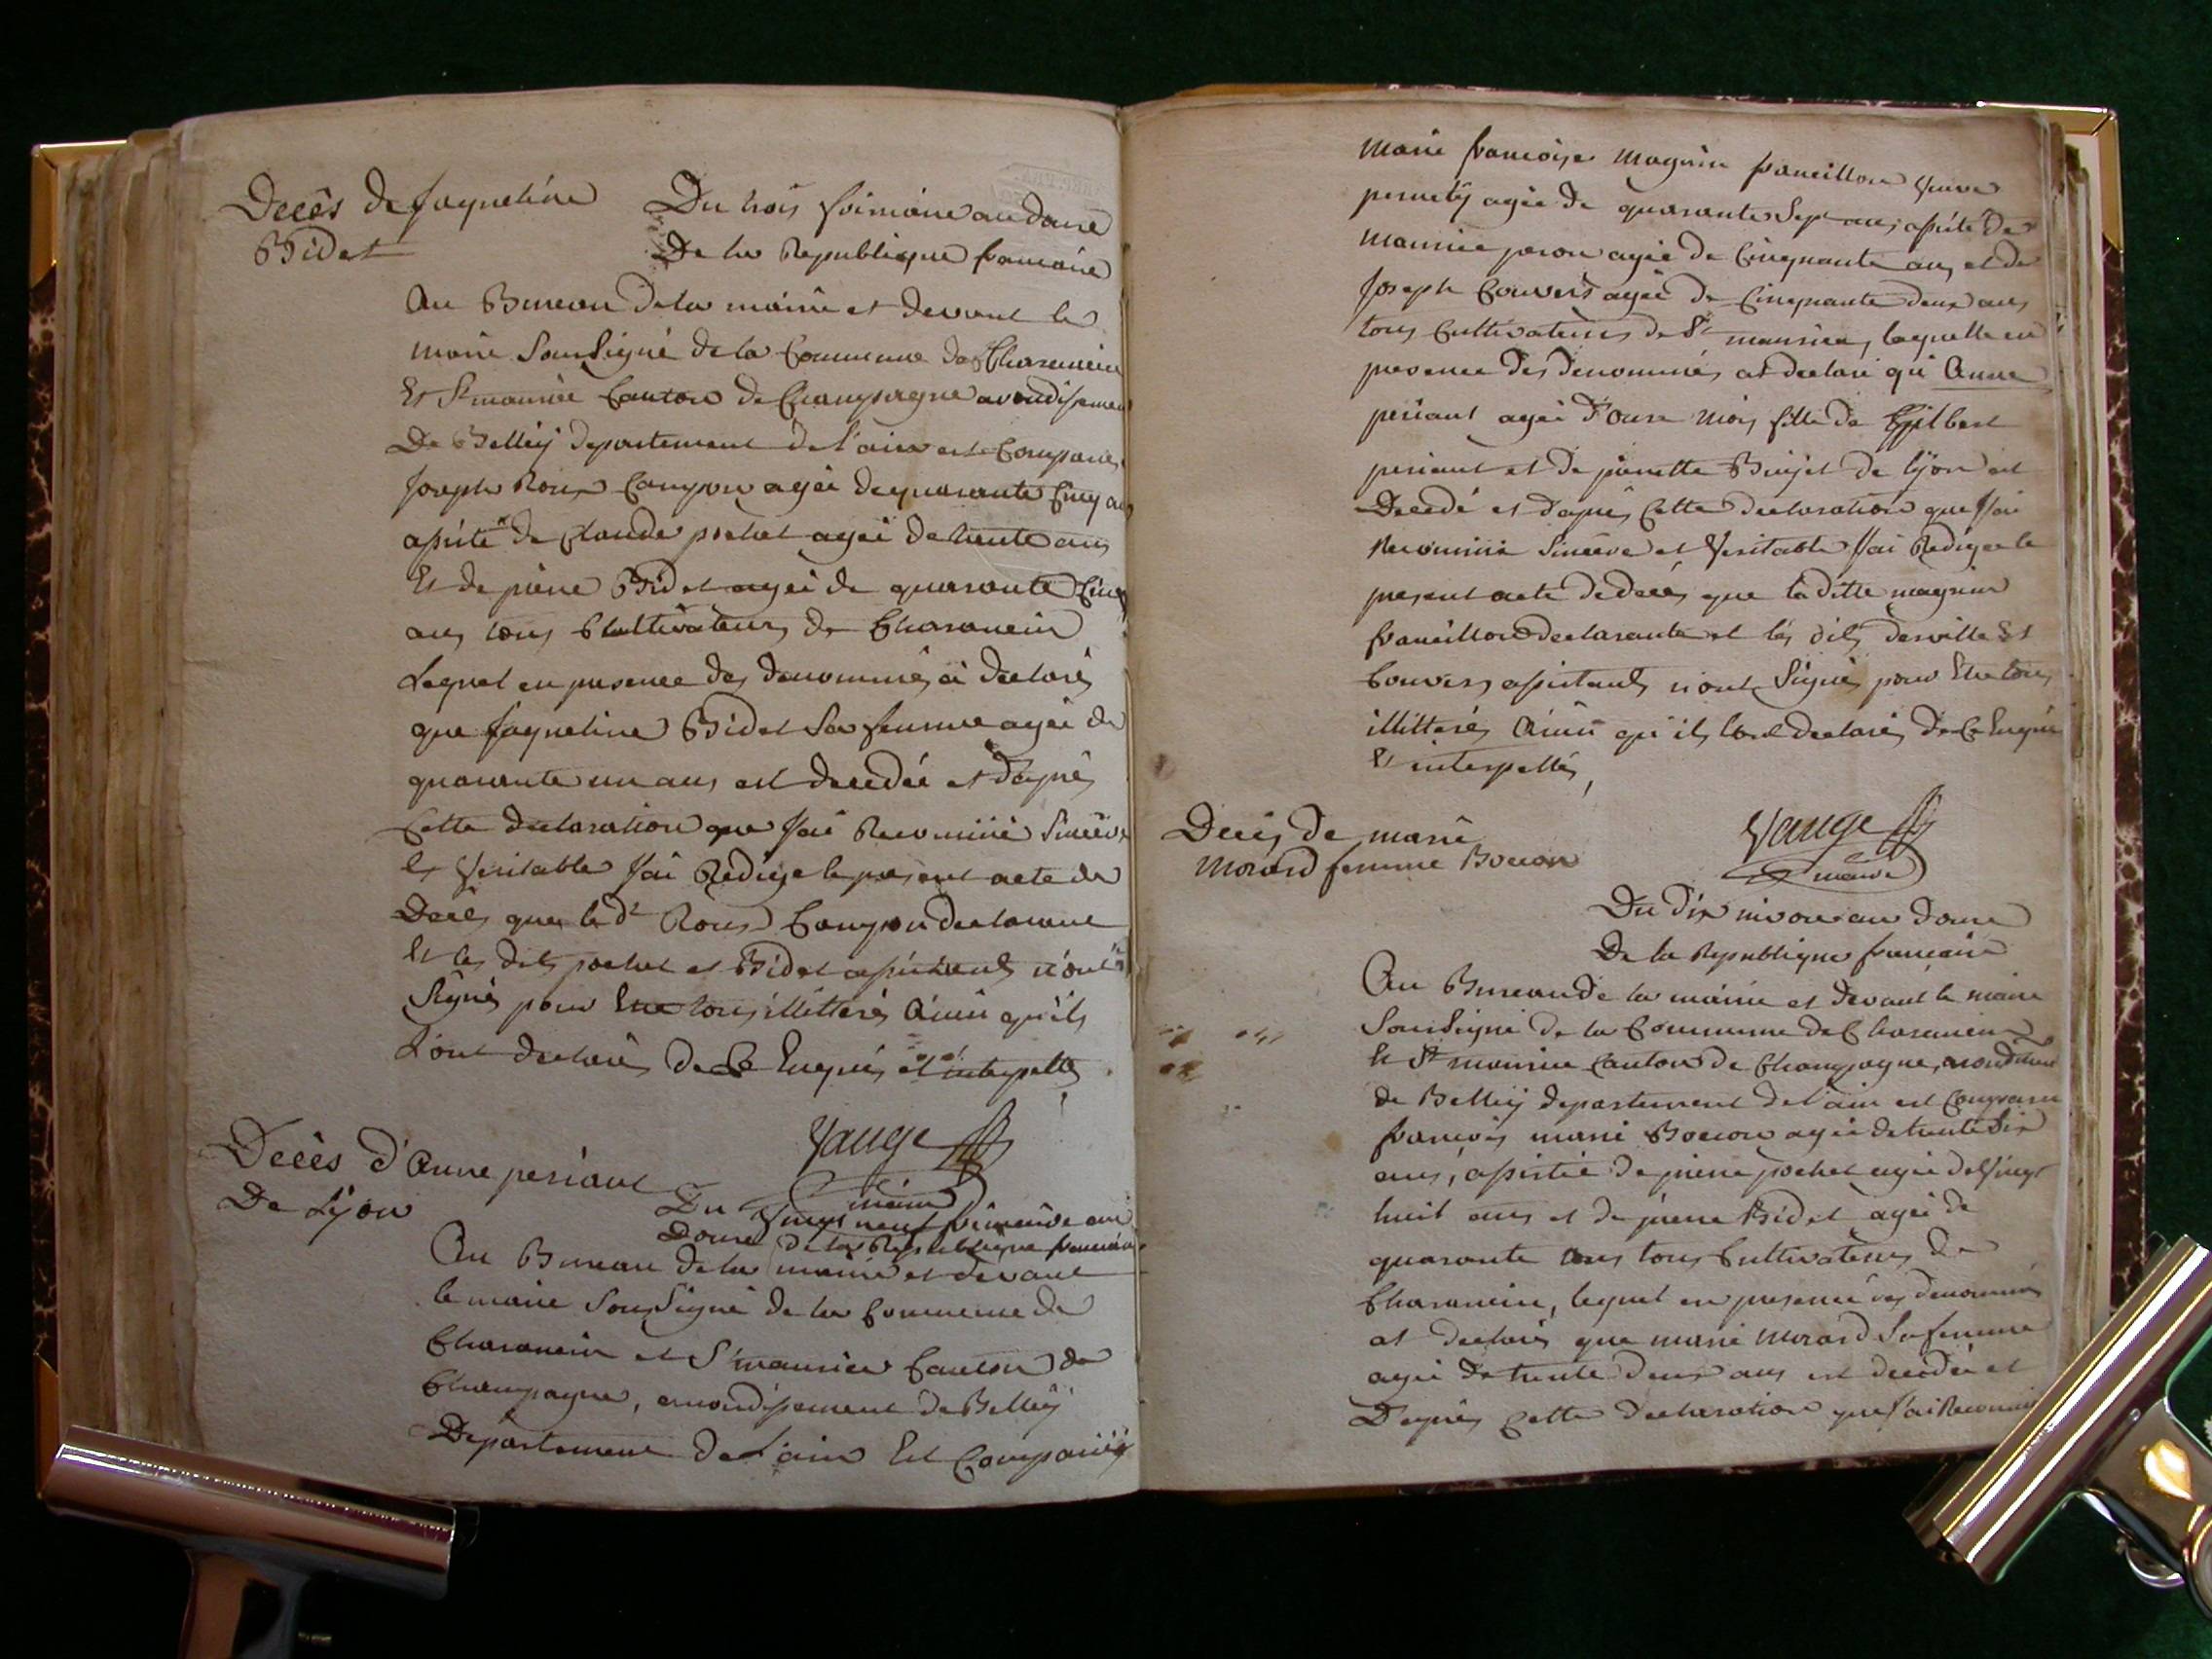 Decès de jaqueline
Bidet
Du trois frimaire an douze
De la Republique francaise
Au Bureau de la mairie et devant le
maire Sousigné de la Commune de Charancin
Et St maurice Canton de Champagne arrondisement
De Belleÿ departement de l'ain est Comparu
joseph Roux Campon agée de quarante Cinq ans
assisté de Claude pochet agée de trente ans
Et de pierre Bidet agée de quarante Cinq
ans tous Cultivateurs de Charancin
Lequel en presence des denommés a declaré
que jaqueline Bidet Sa femme agée de
quarante un ans est decedée et d'après
Cette declaration que j'ai Reconnüe Sincère
et Veritable j'ai Redigé le present acte de
Decès que le dt Roux Campon declarant
Et les dits pochet et Bidet assistants n'ont
Signés pour Etre tous illitterés Ainsi qu'ils
L'ont declarés de Ce Enquis et interpellés
Vauge
maire
Decès d'Anne periant
De Lÿon
Du Vingt neuf frimaire an
Douze de la Republique francaise
Au Bureau de la mairie et devant
le maire Sousigné de la Commune de
Charancin et St maurice Canton de
Champagne, arrondisement de Belleÿ
Departement de L'ain Est Comparüe
marie francoise magnin francillon Veuve
agée de quarante Sept ans assisté de
maurice agée de Cinquante ans et de
joseph Convers agée de Cinquante deux ans
tous Cultivateurs de St maurice, laquelle en
presence des denommés at declaré qu'Anne
periant agée d'onze mois fille de Gilbert
periant et de Bujet de lÿon est
Decedé et d'après Cette declaration que j'ai
Reconnüe Sincère et Veritable j'ai Redigée le
present acte de decès que la ditte magnin
francillon declarante et les dits et
Convers assistants n'ont Signés pour Etre tous
illitterés Ainsi qu'ils l'ont declarés de Ce Enquis
Et interpellés,
Decès de marie
morard femme Bocion
Vauge
maire
Du dix nivose an douze
De la Republique francaise
Au Bureau de la mairie et devant le maire
Sousigné de la Commune de Charancin
Et St maurice Canton de Champagne, arrondisement
de Belleÿ departement de l'ain est Comparu
francois marie Bocion agée de trente Six
ans, assistée de pierre pochet agée de Vingt
huit ans et de pierre Bidet agée de
quarante ans tous Cultivateurs de
Charancin, lequel en presence des denommés
at declaré que marie morard Sa femme
agée de trente deux ans est decedée et
D'après Cette declaration que j'ai Reconnüe